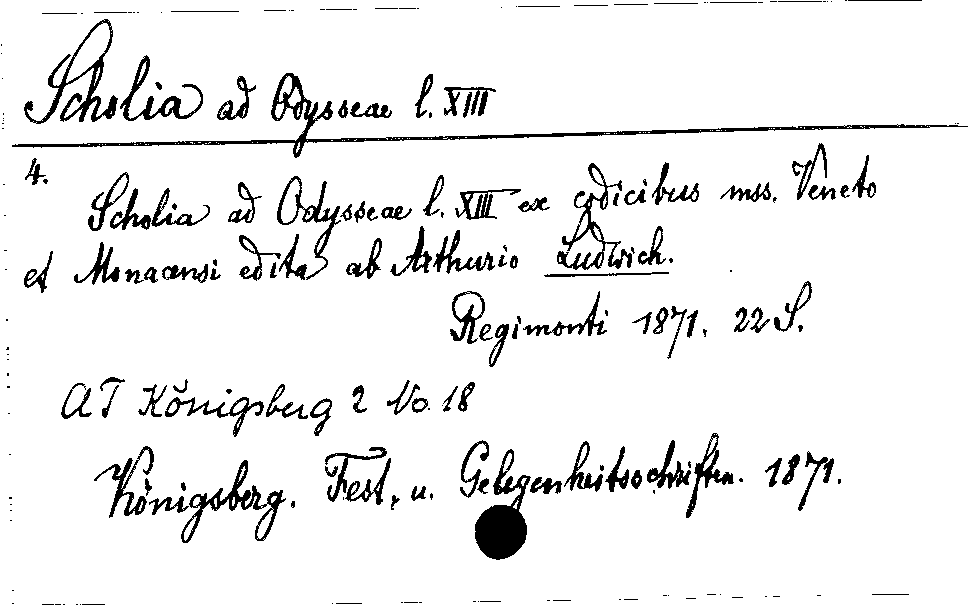 Scholia ad Odysseae l. XIII
4.
Scholia ad Odysseae l. XIII ex codicibus mss. Veneto
et Monacensi edita ab Arthurio Ludwich.
Regimonti 1871. 22 S.
AT Königsberg 2 No. 18
Königsberg. Fest. u. Gelegenheitsschriften. 1871.